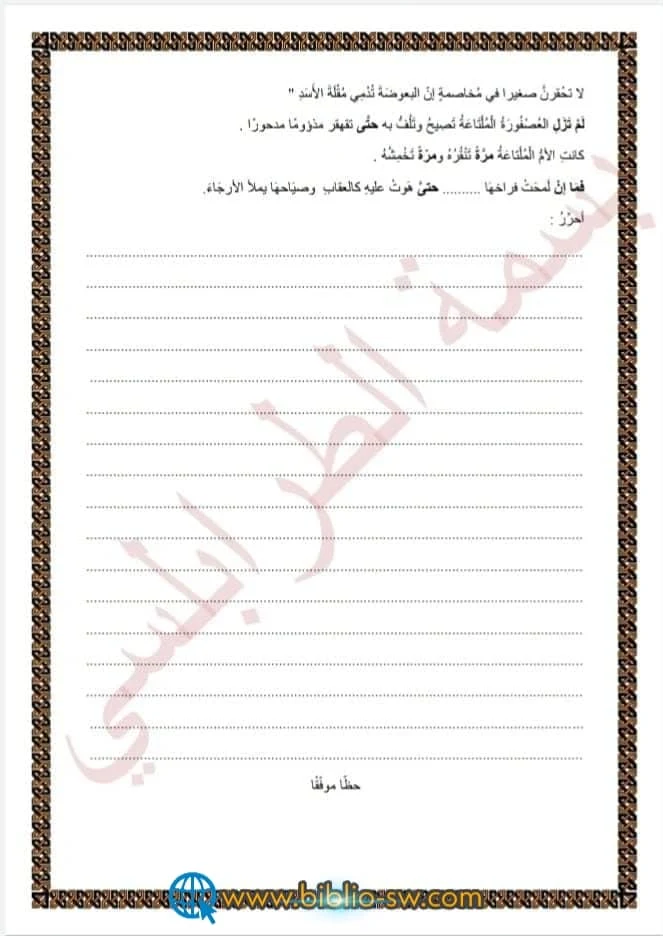 لا تحْقرنَّ صغيرا في مُخاصمةٍ إنّ البعوضةَ تُدْمِي مُقْلَةَ الأَسَدِ "
لَمْ تَزَلِ العُصْفُورَةُ الْمُلْتَاعَةُ تَصِيحُ وتَلُفُّ به حتَّى تقهقر مذؤومًا مدحورًا .
كانتِ الأمُّ الْمُلْتاعَةُ مرَّةً تَنْقُرُهُ ومرّةً تَخْمِشُهُ .
فَمَا إنْ لَمحَتْ فراخهَا .......... حتىَّ هَوتْ عليهِ كالعقابِ وصيَاحهَا يملأ الأرجَاءَ.
أحرِّرُ :
بسمة الطرابلسي
حظّا موفّقًا
www.biblio-sw.com